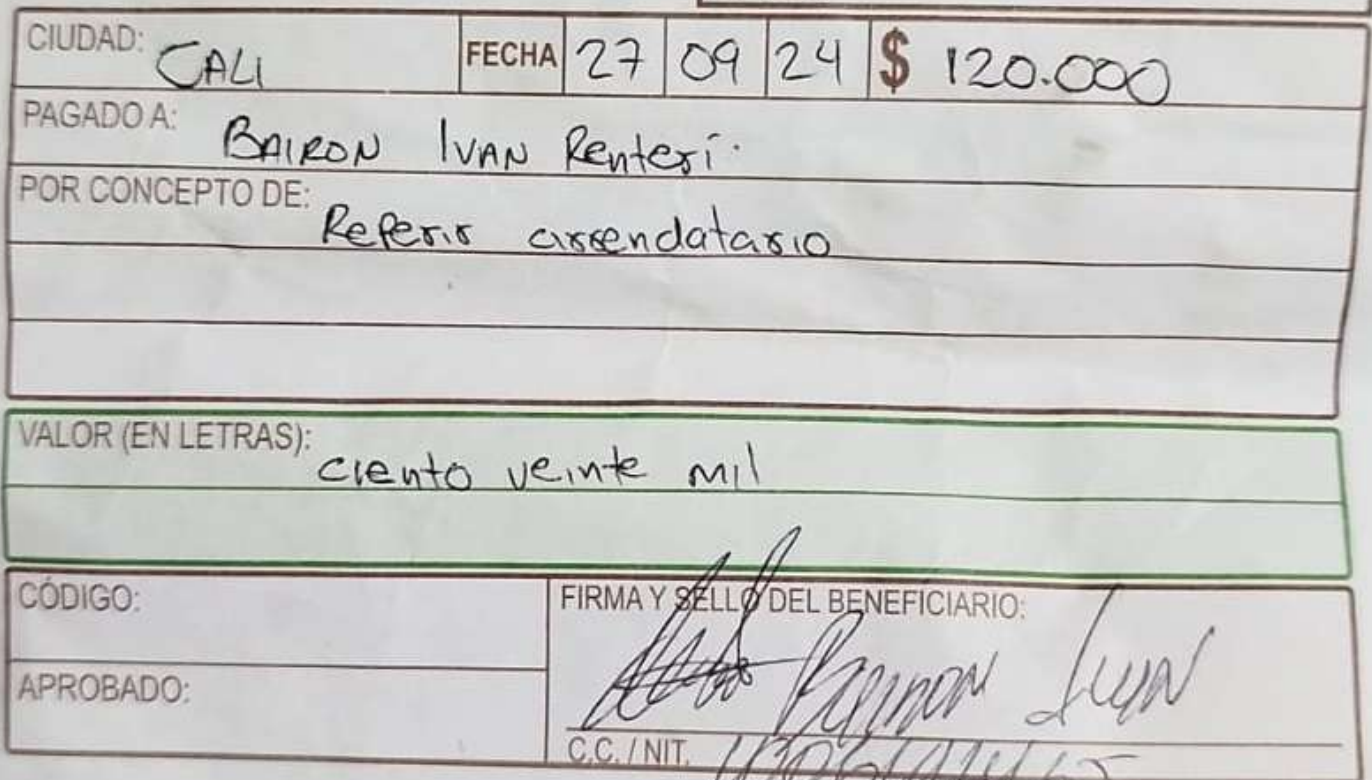 CIUDAD: CALI FECHA 27 09 24 $ 120.000
PAGADO A: BAIRON IVAN Renterí.
POR CONCEPTO DE: Referir arrendatario
VALOR (EN LETRAS): ciento veinte mil
CÓDIGO: FIRMA Y SELLO DEL BENEFICIARIO:
Bairon Ivan
APROBADO:
C.C. / NIT.